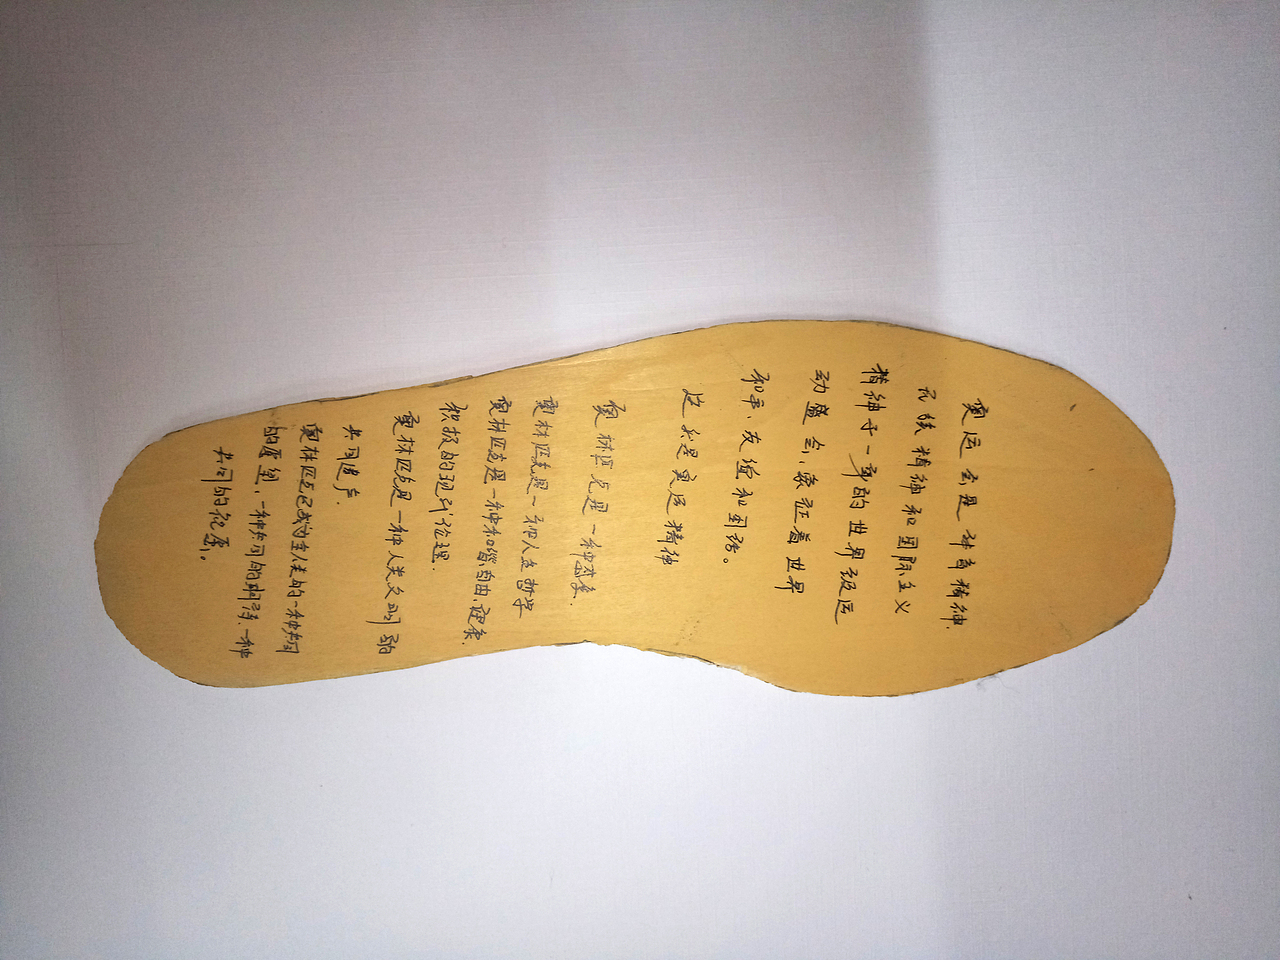 奥运会是体育精神.
民族精神和国际主义
精神于一身的世界级运
动盛会,象征着世界
和平、友谊和团结。
这就是奥运精神
奥林匹克是一种态度.
奥林匹克是一种人生哲学
奥林匹克是一种和谐.自由.健康.
积极的现代伦理.
奥林匹克是一种人类文明的
共同遗产.
奥林匹克已成为全人类的一种共同
的愿望,一种共同的期待.一种
共同的纪念。